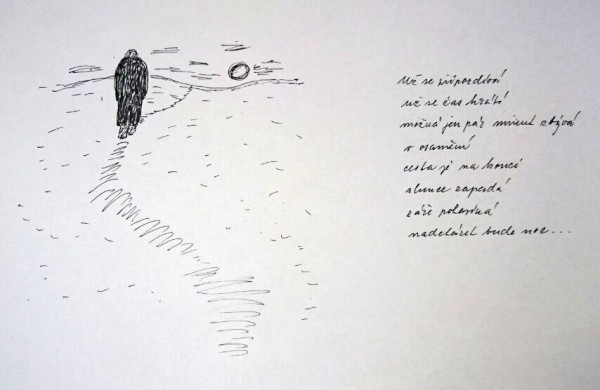 Už se připozdívá
už se čas krátí
možná jen pár minut zbývá
v osamění
cesta je na konci
slunce zapadá
záře pohasíná
nadcházet bude noc...